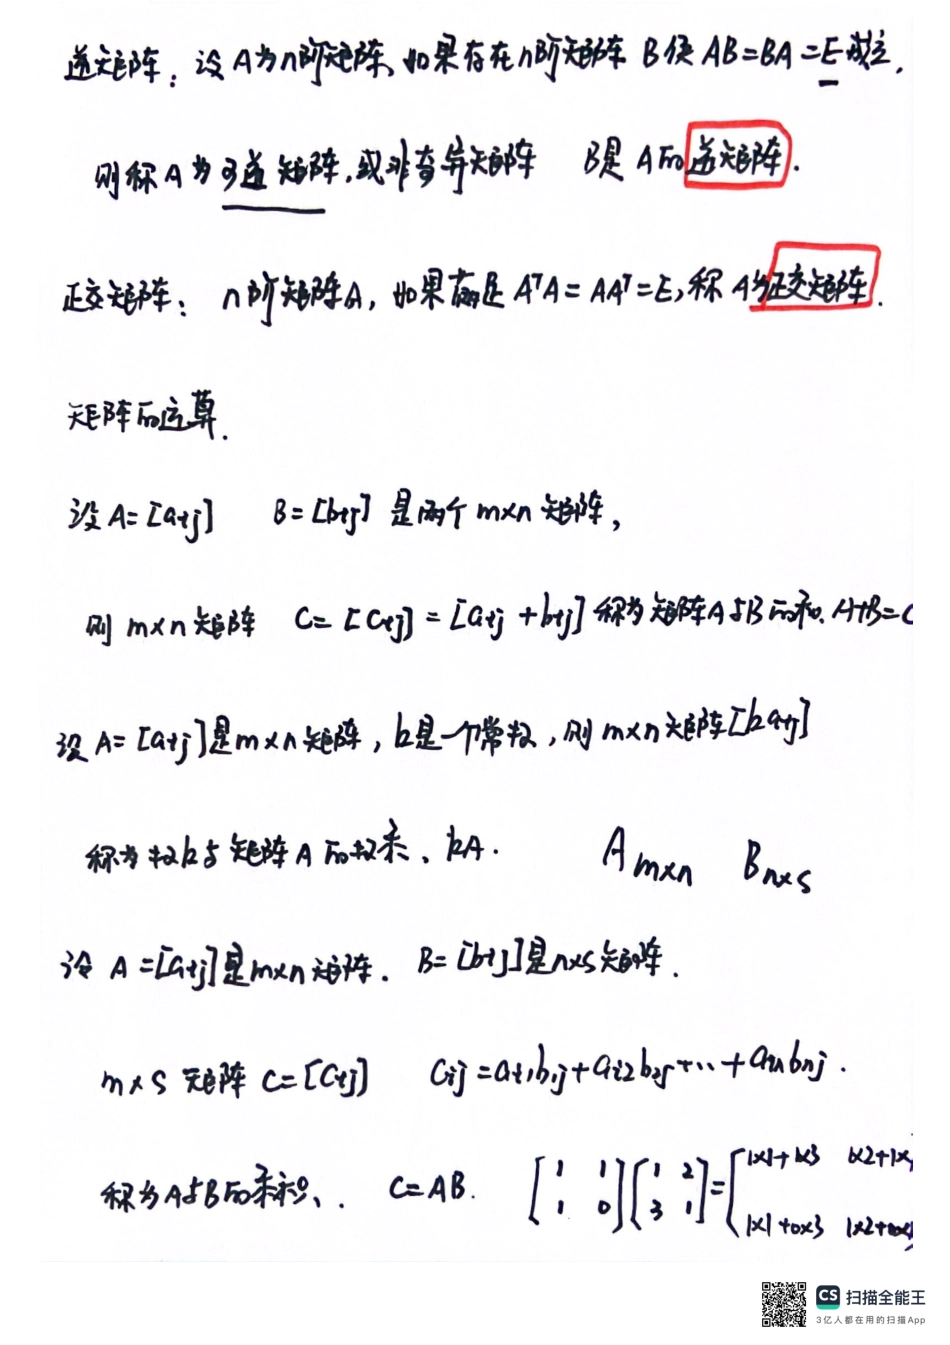 逆矩阵：设A为n阶矩阵、如果存在n阶矩阵 B使 AB=BA=E成立.
则称A为可逆矩阵,或非奇异矩阵 B是A的逆矩阵.
正交矩阵: n阶矩阵A, 如果满足 AᵀA=AAᵀ=E,称A为正交矩阵.
矩阵的运算.
设A=[aij] B=[bij] 是两个m×n矩阵,
则 m×n矩阵 C=[Cij]=[aij+bij]称为矩阵A与B的和. A+B=C
设 A=[aij]是m×n矩阵, k是一个常数, 则m×n矩阵[kaij]
称为数k与矩阵A的数乘、kA.
A m×n B n×s
设 A=[aij]是m×n矩阵. B=[bij]是n×s矩阵.
m×s 矩阵 C=[Cij] Cij=ai1b1j+ai2b2j+··+ainbnj.
称为A与B的乘积、. C=AB. [1 1 1 0][1 2 3 1]=[1×1+1×3 1×2+1× 1×1+0×3 1×2+0×
CS 扫描全能王
3亿人都在用的扫描App